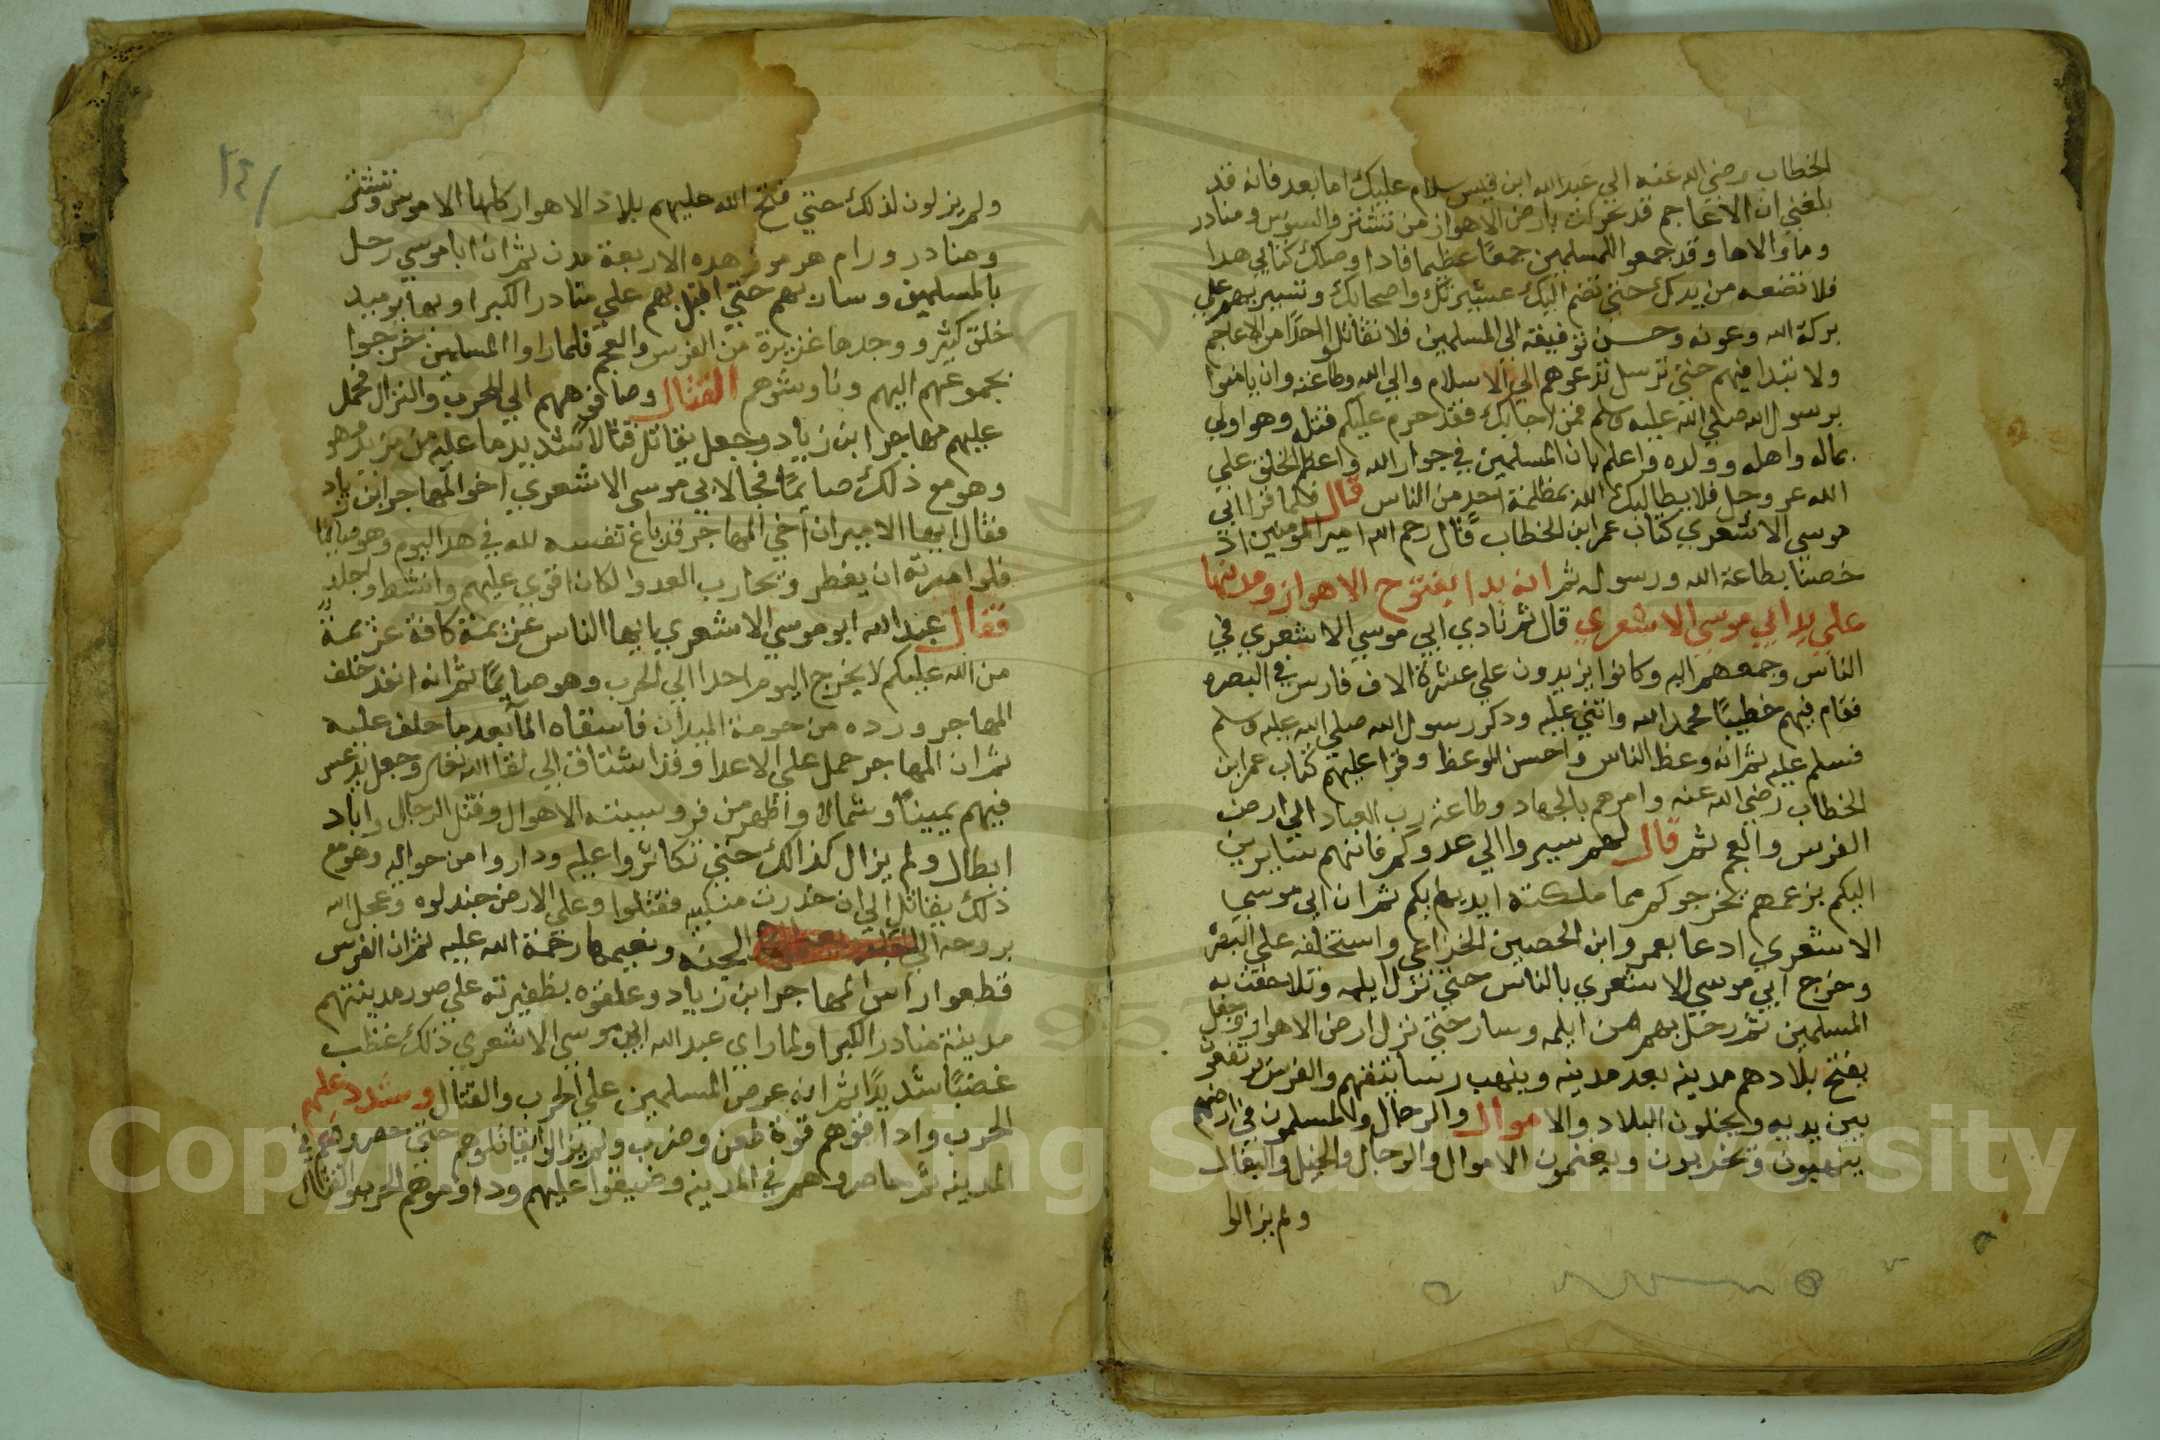 الخطاب رضي الله عنه الي عبد الله ابن قيس سلام عليك اما بعد فانه قد
بلغني ان الاعاجم قد تحركت بارض الاهواز من تشتر والسوس ومنادر
وما والاها وقد جمعوا للمسلمين جمعًا عظيما فاذا وصلك كتابي هدا
فلا تضعه من ايدك حتي تضم اليك عشيرتك واصحابك وتسير بهم علي
بركة الله وعونه وحسن توفيقه الي المسلمين فلا تقاتلوا احدًا من الاعاجم
ولا تبدا فيهم حتي ترسل تدعوهم الي الاسلام والي الله وطاعته وان يامنوا
برسول الله صلي الله عليه وسلم فمن اجابك فقد حرم عليكم قتله وهو اولي
بماله واهله وولده واعلم بان المسلمين في جوار الله واعظ الخلق علي
الله عز وجل فلا يطالبك الله بمظلمة احدٍ من الناس قال فلما قرا ابي
موسى الاشعري كتاب عمر ابن الخطاب قال رحم الله امير المومنين اذ
خصنا بطاعة الله ورسوله ثم انه بدا بفتوح الاهواز ومدنها
علي يد ابي موسى الاشعري قال ثم نادي ابي موسي الاشعري في
الناس وجمعهم اليه وكانوا يزيدون علي عشرة الاف فارس في البصره
فقام فيهم خطيبًا فحمد الله واثني عليه ودكر رسول الله صلي الله عليه وسلم
فسلم عليه ثم انه وعظ الناس واحسن الموعظ وقرا عليهم كتاب عمر ابن
الخطاب رضي الله عنه وامرهم بالجهاد وطاعة رب العباد الي ارض
الفرس والعجم ثم قال لهم سيروا الي عدوكم فانهم سايرين
اليكم بزعمهم يخرجوكم مما ملكته ايديهم بكم ثم ان ابي موسي
الاشعري ادعا بعمرو ابن الحصين الخزاعي واستخلفه علي البصره
وخرج ابي موسي الاشعري بالناس حتي نزل ايله وتلاحقت به
المسلمين ثم رحل بهم من ايله وسار حتي نزل ارض الاهواز وجعل
يفتح بلادهم مدينه بعد مدينه وينهب رساتيقهم والفرس ترتفعن
بين يديه ويخلون البلاد والاموال والرجال والمسلمون في ارضهم
ينهبون ويخربون ويغنمون الاموال والرجال والخيل والبقال
ولم يزالوا
ولم يزلون لذلك حتي فتح الله عليهم بلاد الاهواز كلها الا موسى وتشتر
ومنادر ورام هرموز هده الاربعة مدن ثم ان ابا موسي رحل
بالمسلمين وسار بهم حتي اقبل بهم علي منادر الكبرا وبها يوميد
خلق كثير ووجدها غزيرة من الفرس والعجم فلما راوا المسلمين خرجوا
بجموعهم اليهم وناوشوهم القتال وصافوهم الي الحرب والنزال فحمل
عليهم مهاجر ابن زياد وجعل يقاتل قتالًا شديد ما عليه من مزيد وهو
وهو مع ذلك صايمًا فجا لابي موسى الاشعري اخو المهاجر ابن زياد
فقال ايها الامير ان اخي المهاجر قد باع نفسه لله في هدا اليوم وهو صايمًا
فلو امرته ان يفطر ويحارب العدوا لكان اقوي عليهم وانشط واجلد
فقال عبد الله ابو موسي الاشعري يا ايها الناس عزيمة كافة عزيمةً
من الله عليكم لا يخرج اليوم احدا الي الحرب وهو صايمًا ثم انه انفد خلف
المهاجر ورده من حومة الميدان فاسقاه الما بعد ما حلف عليه
ثم ان المهاجر حمل علي الاعدا وقد اشتاق الي لقا الله تعالى وجعل يدعس
فيهم يمينًا وشمالًا واظهر من فروسيته الاهوال وقتل الرجال واباد
ابطال ولم يزال كذالك حتي تكاثروا عليه وداروا من حواليه وهو مع
ذلك يقاتل الي ان خدرت منكبيه فقتلوا وعلي الارض جندلوه وعجل الله
بروحه الي الجنه ونعيمها رحمة الله عليه ثم ان الفرس
قطعوا راس المهاجر ابن زياد وعلقوه بظفيرته علي صور مدينتهم
مدينة منادر الكبرا ولما راي عبد الله ابي موسي الاشعري ذلك غظب
غضبًا شديدًا ثم انه عرض المسلمين علي الحرب والقتال وشدد عليهم
الحرب واذاقوهم قوة طعن وضرب ولم يزالوا يقاتلوهم حتي حصروهم في
المدينه ثم حاصروهم في المدينه وضيقوا عليهم وداوموهم الحرب والقتال
Copyright © King Saud University